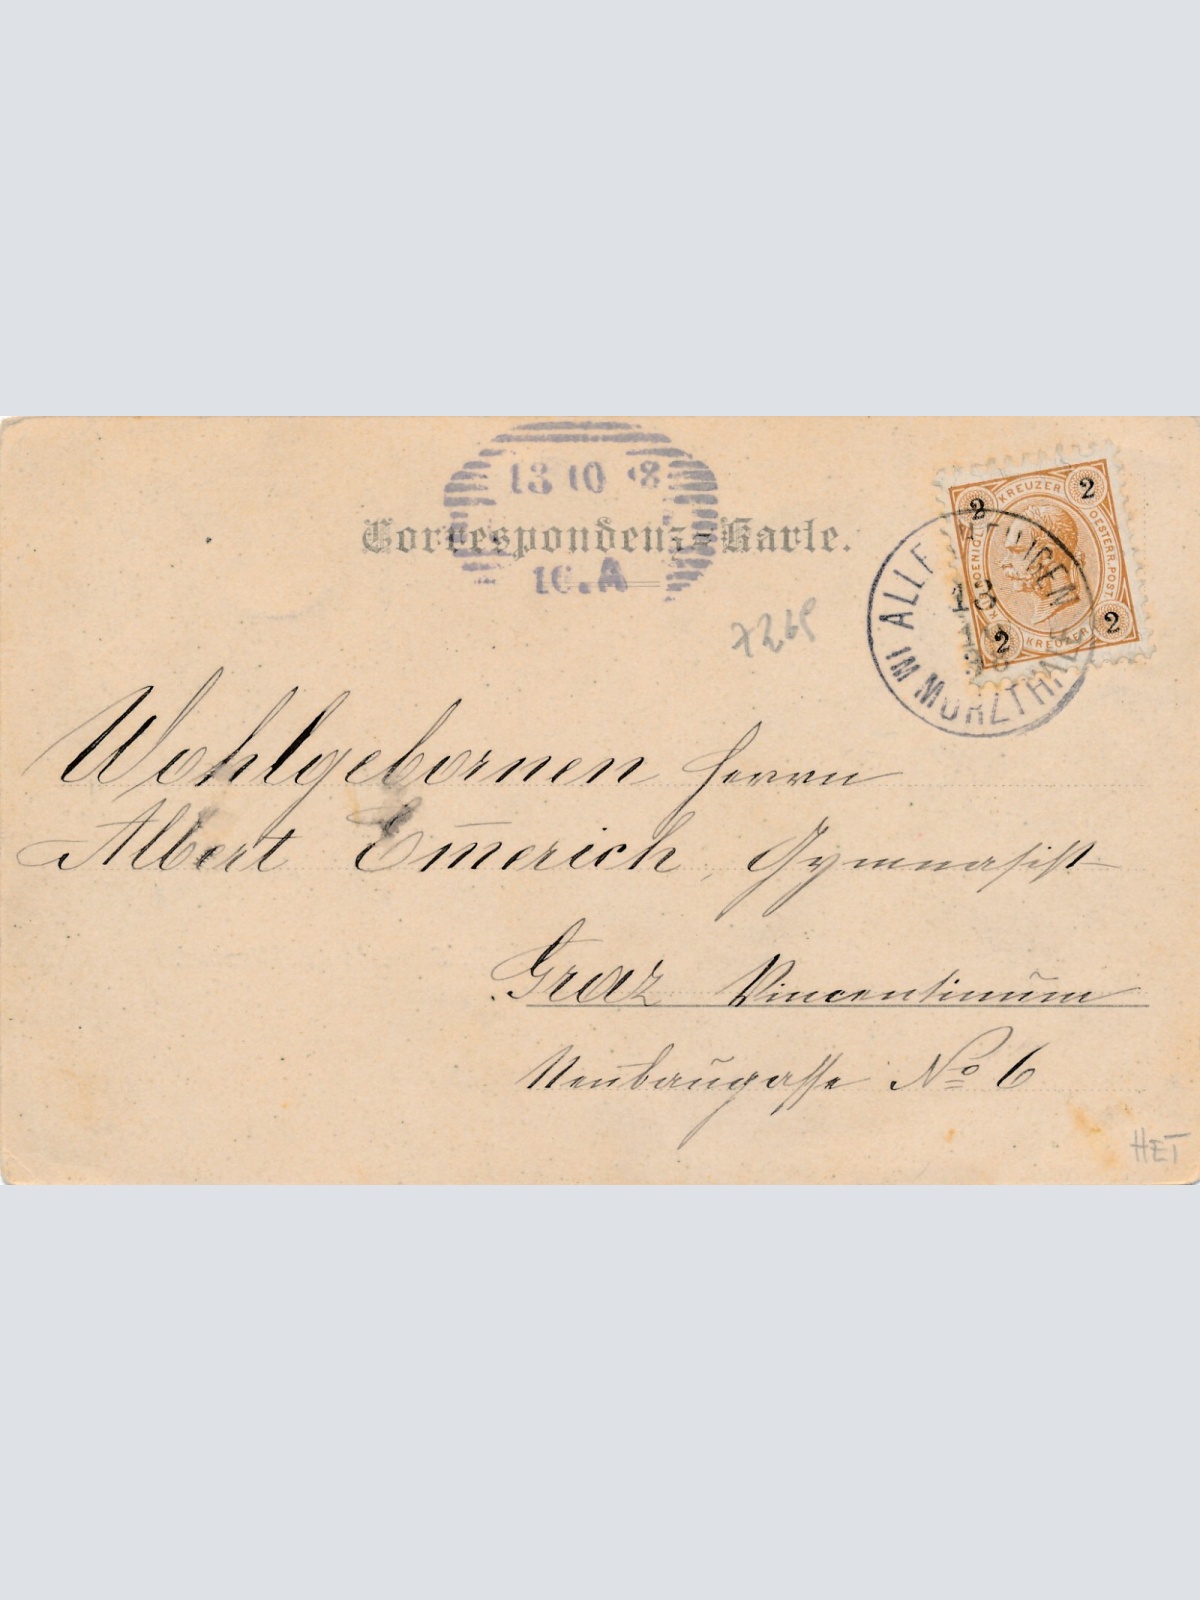 13 10 98
Correspondenz-Karte.
10.A
KREUZER
2 2
OESTERR.POST
KREUZER
2 2
ALLERHEILIGEN
IM MÜRZTHALE
13
7269
Wohlgebornen Herrn
Albert Em̅erich, Gymnasist
Graz Vincentinum
Neubaugasse No 6
HET